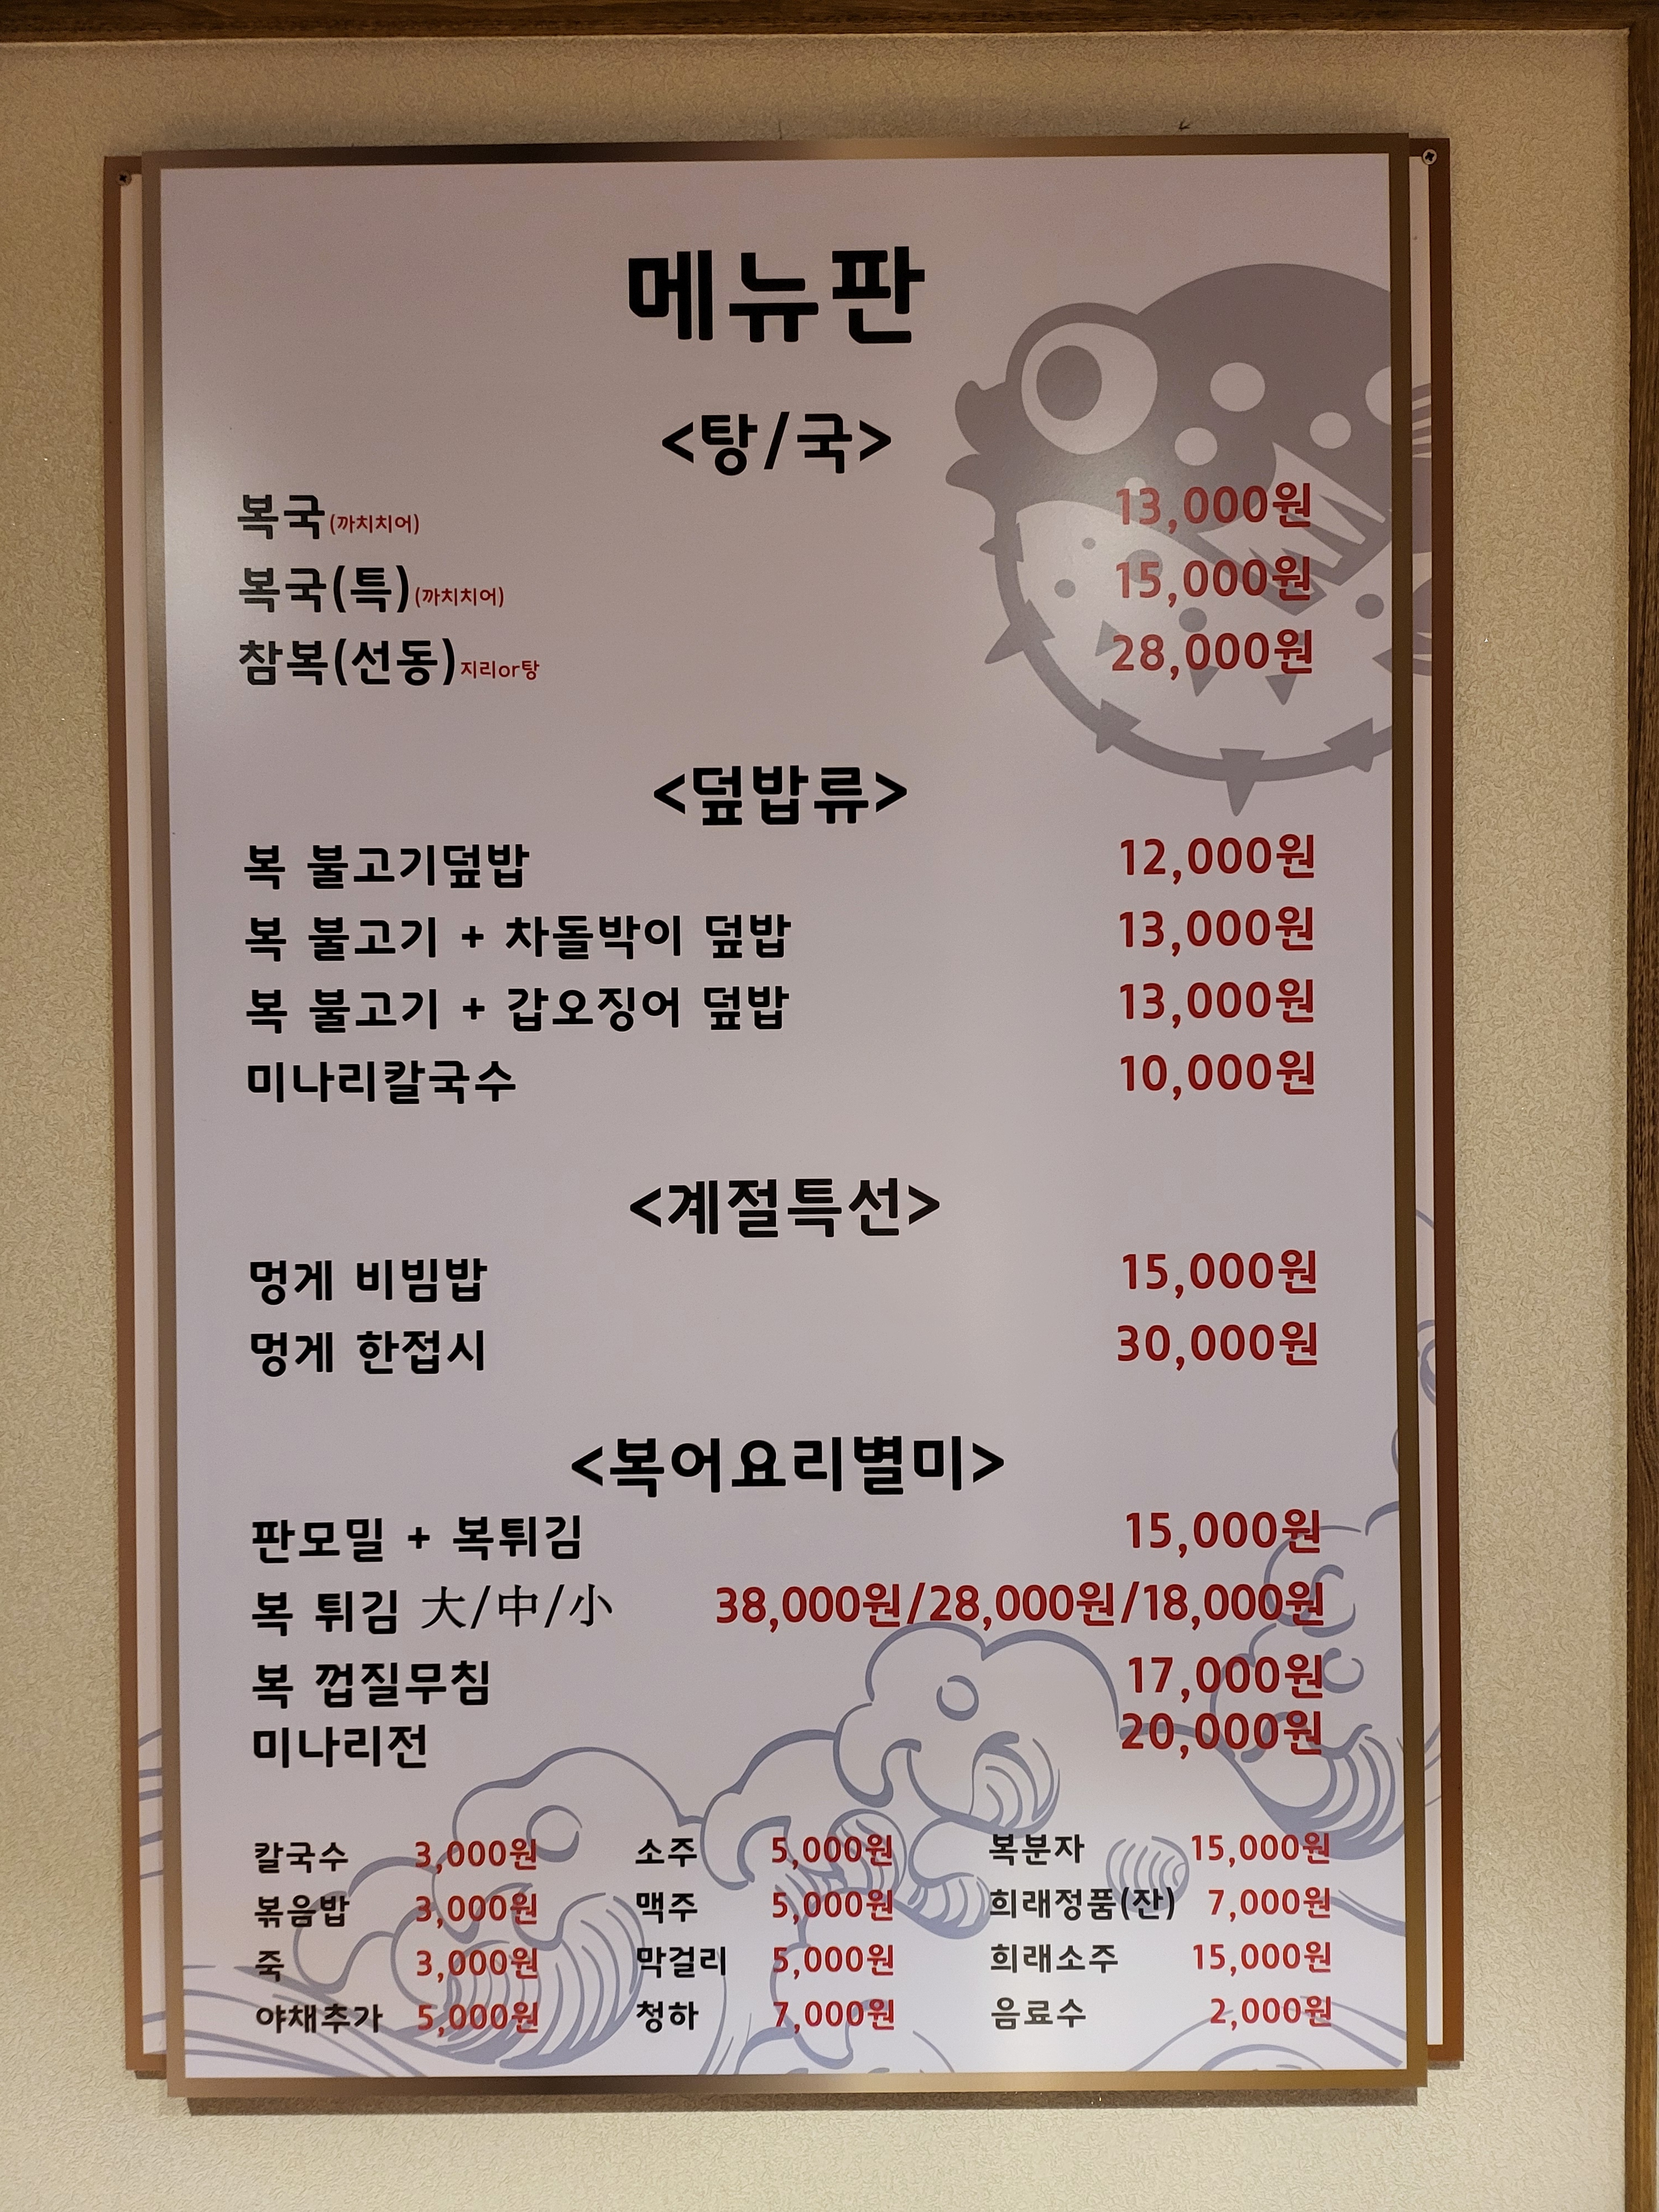 메뉴판
<탕/국>
복국(까치치어) 13,000원
복국(특)(까치치어) 15,000원
참복(선동)지리or탕 28,000원
<덮밥류>
복 불고기덮밥 12,000원
복 불고기 + 차돌박이 덮밥 13,000원
복 불고기 + 갑오징어 덮밥 13,000원
미나리칼국수 10,000원
<계절특선>
멍게 비빔밥 15,000원
멍게 한접시 30,000원
<복어요리별미>
판모밀 + 복튀김 15,000원
복 튀김 大/中/小 38,000원/28,000원/18,000원
복 껍질무침 17,000원
미나리전 20,000원
칼국수 3,000원 소주 5,000원 복분자 15,000원
볶음밥 3,000원 맥주 5,000원 희래정품(잔) 7,000원
죽 3,000원 막걸리 5,000원 희래소주 15,000원
야채추가 5,000원 청하 7,000원 음료수 2,000원